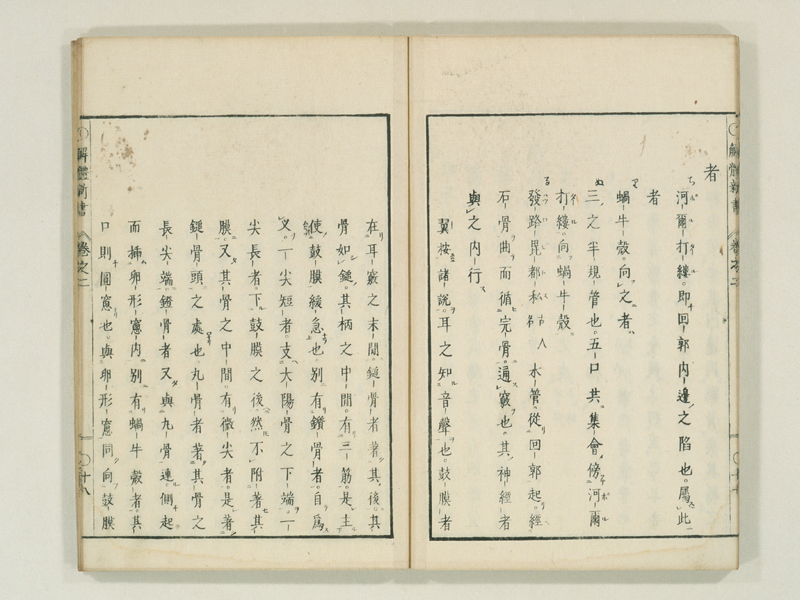 者
河爾打縷。即回郭內邊之陷也。屬此
者
蝸牛殼。向之者
三之半規管也。五口共集會。傍河爾
打縷。向蝸牛殼。
發路毘都私 水管。從回郭起。經
石骨曲而循完骨。遍竅也。其神經者
與之內行
翼按諸說。耳之知音聲也。鼓膜者
在耳竅之末間。鎚骨者著其後。其
骨如鎚。其柄之中間。有三筋。是主
使鼓膜緩急也。別有鑽骨者。自爲
又。一尖短者。支大陽骨之下端。一
尖長者。下鼓膜之後。然不附著其
膜。又其骨之中間。有微尖者。是著
鎚骨頭之處也。丸骨者。著其骨之
長尖端。鐙骨者。又與丸骨連。側起
而挿卵形窻內。別有蝸牛殼者。其
口則圓窻也。與卵形窻同向鼓膜
解體新書 卷之二
十八